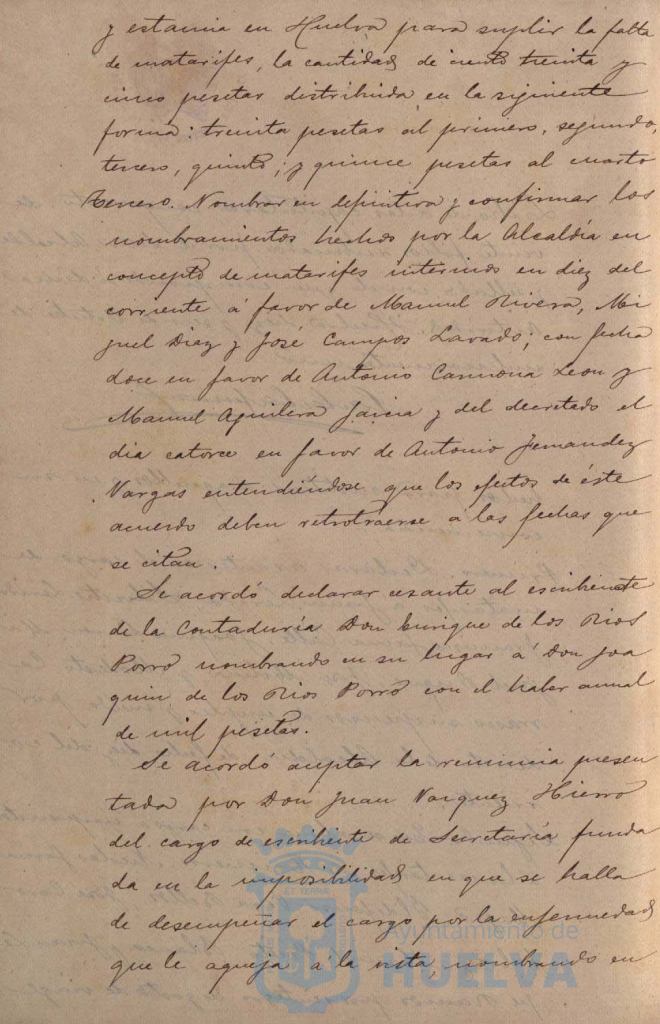 y estancia en Huelva para suplir la falta
de matarifes, la cantidad de ciento treinta y
cinco pesetas distribuida en la siguiente
forma: treinta pesetas al primero, segundo,
tercero, quinto; y quince pesetas al cuarto
Tercero. Nombrar en definitiva y confirmar los
nombramientos hechos por la Alcaldía en
concepto de matarifes interinos en diez del
corriente á favor de Manuel Rivera, Mi
guel Diaz y José Campos Lavado; con fecha
doce en favor de Antonio Carmona Leon y
Manuel Aguilera Garcia y del decretado el
dia catorce en favor de Antonio Fernandez
Vargas entendiéndose que los efectos de éste
acuerdo deben retrotraerse á las fechas que
se citan.
Se acordó declarar cesante al escribiente
de la Contaduría Don Enrique de los Rios
Porro nombrando en su lugar á Don Joa
quin de los Rios Porro con el haber anual
de mil pesetas.
Se acordó aceptar la renuncia presen
tada por Don Juan Vazquez Hierro
del cargo de escribiente de Secretaría funda
da en la imposibilidad en que se halla
de desempeñar el cargo por la enfermedad
que le aqueja á la vista, nombrando en
Ayuntamiento de
HUELVA